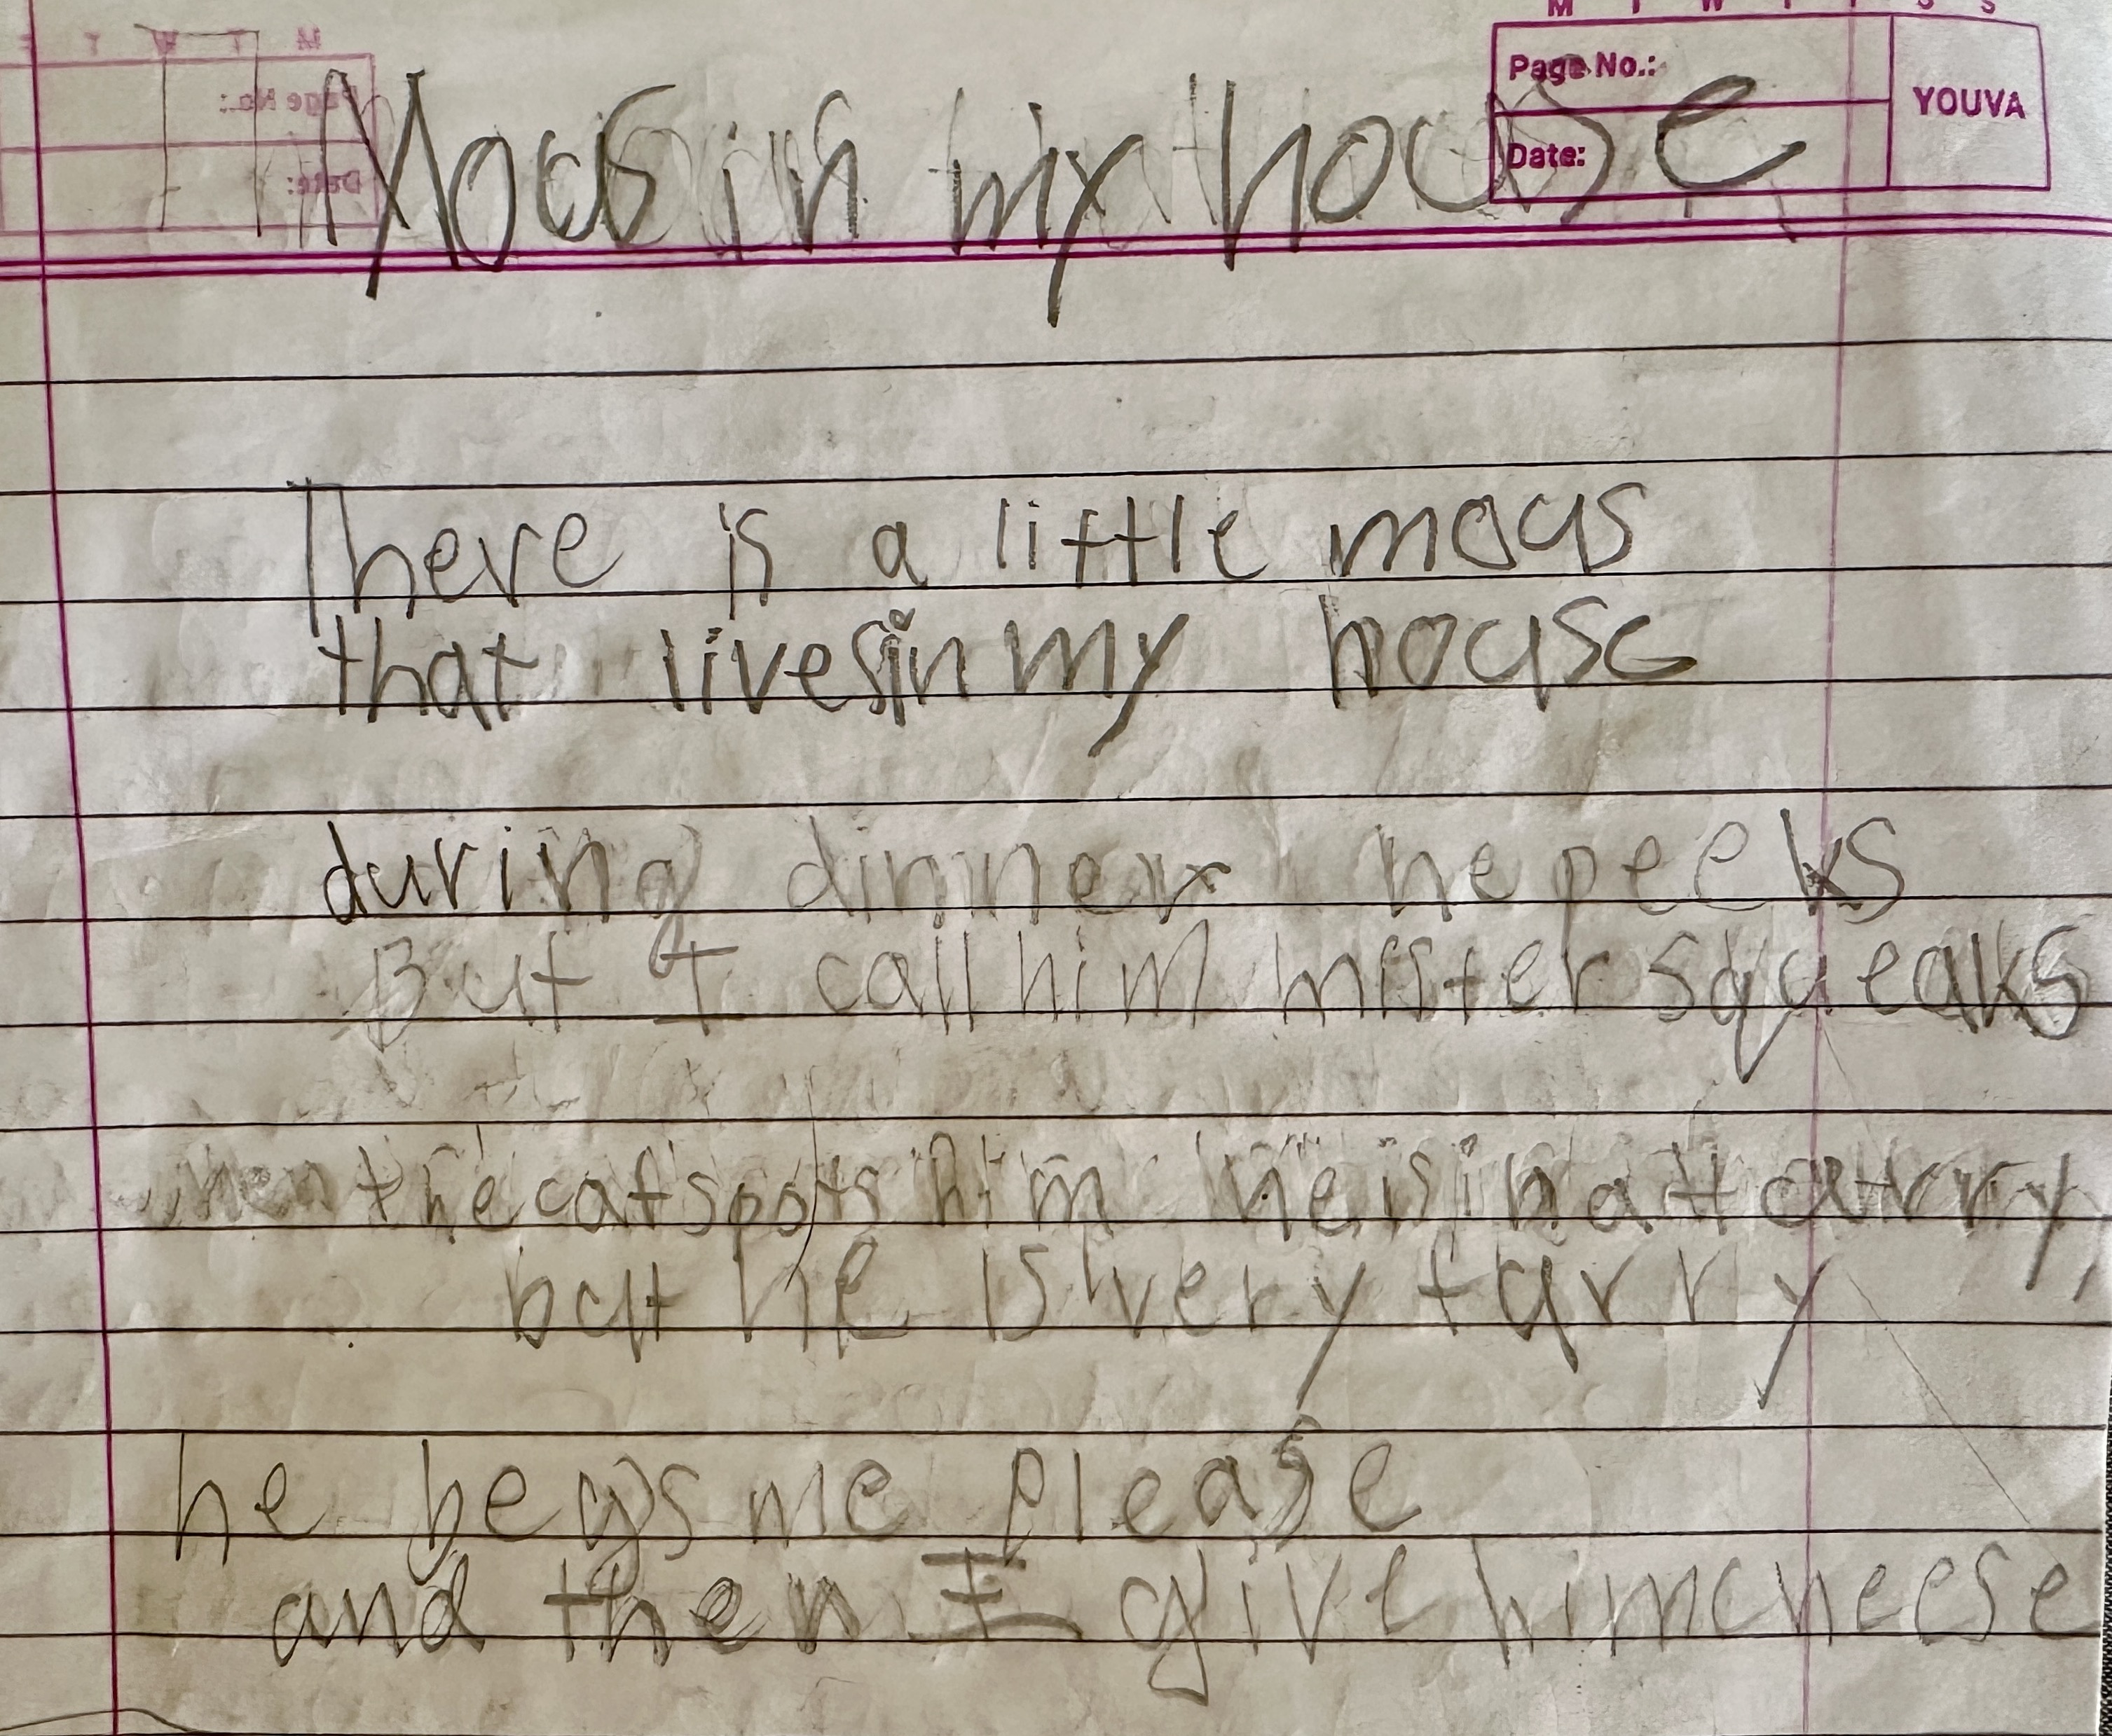 M T W T F S S
Page No.:
Date:
YOUVA
Mous in my house
There is a little mous
that lives in my house
during dinner he peeks
But I call him mister squeaks
when the cat spots him he is in a
but he is very furry
he begs me please
and then I give him cheese